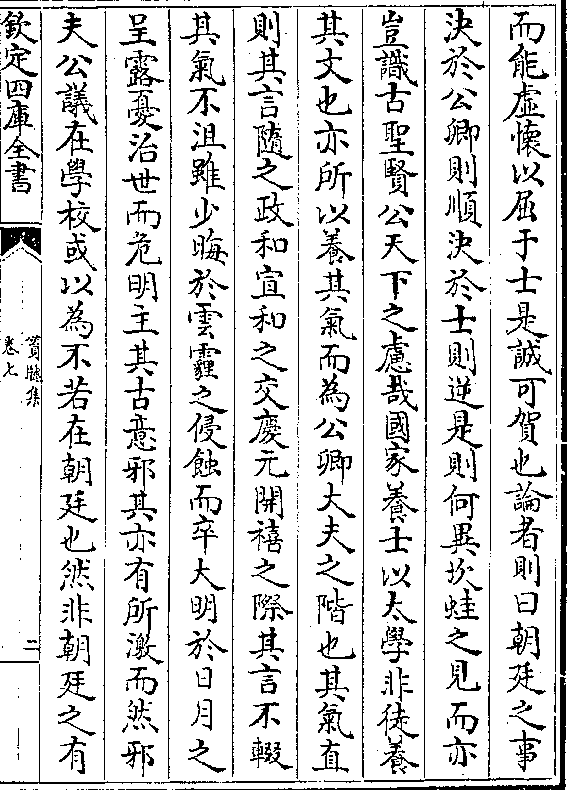 而能虛懷以屈于士是誠可賀也論者則曰朝廷之事
決於公卿則順決於士則逆是則何異坎蛙之見而亦
豈識古聖賢公天下之慮哉國家養士以太學非徒養
其文也亦所以養其氣而為公卿大夫之階也其氣直
則其言隨之政和宣和之交慶元開禧之際其言不輟
其氣不沮雖少晦於雲霾之侵蝕而卒大明於日月之
呈露憂治世而危明主其古意邪其亦有所激而然邪
夫公議在學校或以為不若在朝廷也然非朝廷之有
欽定四庫全書
篔牕集
卷七
二